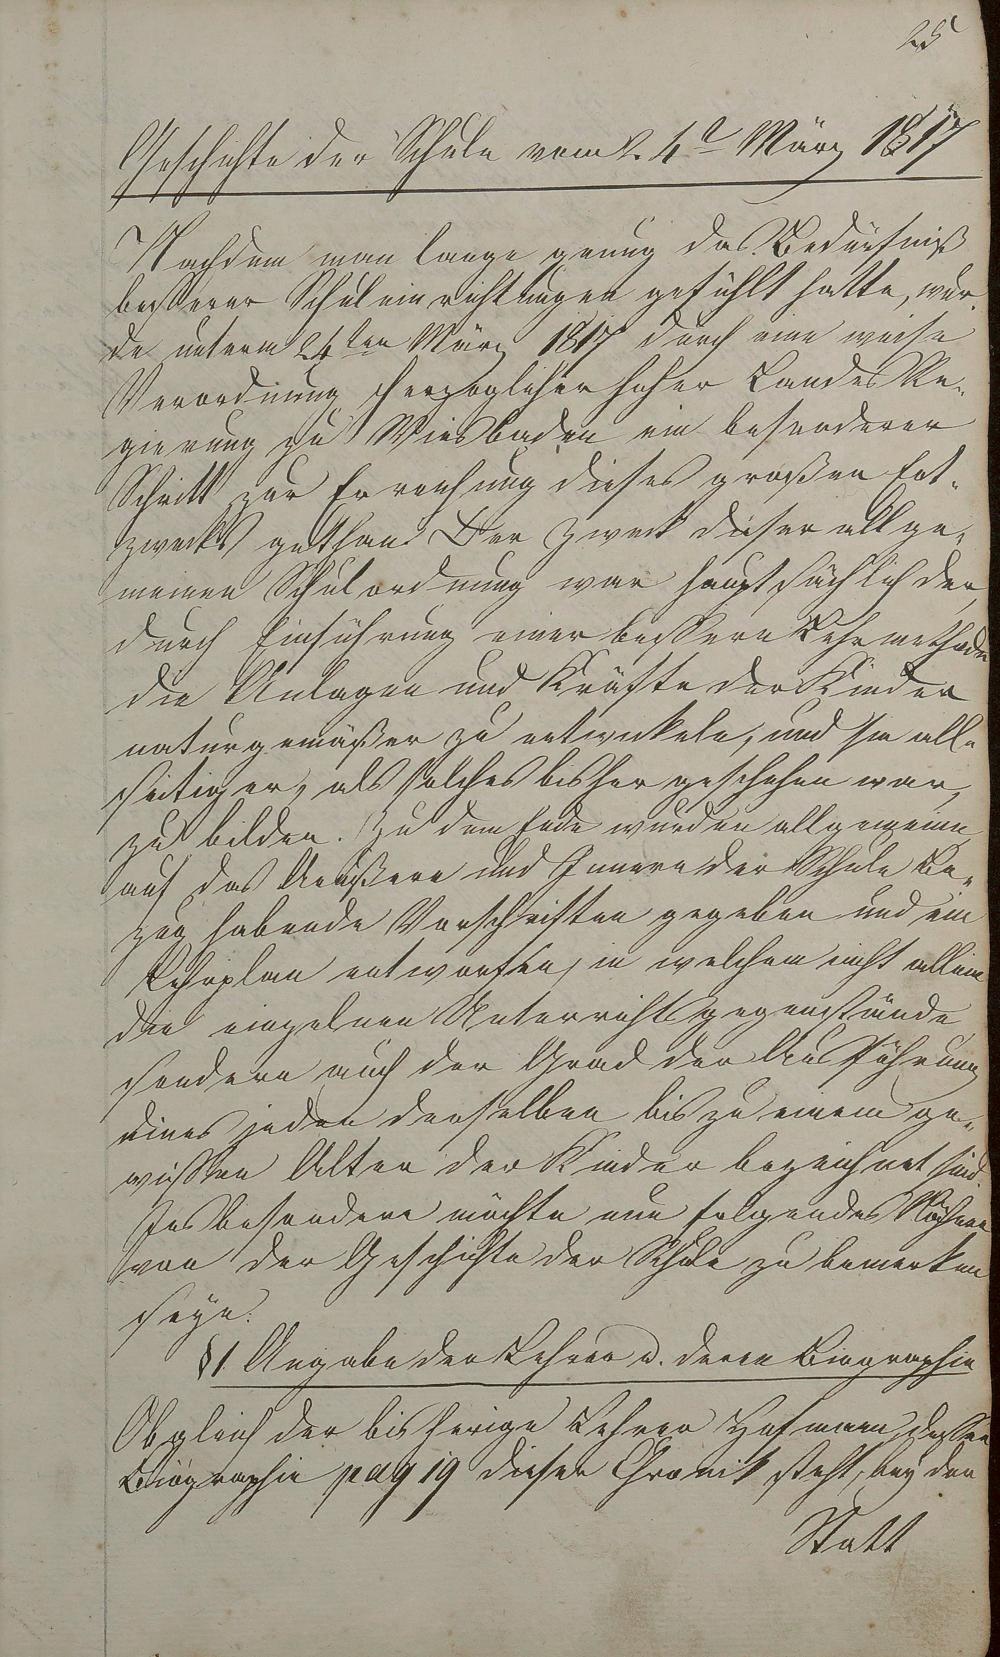 25
Geschichte der Schule vom 24t März 1817
Nachdem man lange genug das Bedürfniß
beßerer Schuleinrichtungen gefühlt hatte, wur-
de unterm 24ten März 1817 durch eine weise
Verordnung Herzoglicher hoher Landes Re-
gierung zu Wiesbaden ein besonderer
Schritt zur Erreichung dieses großen End-
zwecks gethan. Der Zweck dieser allge-
meinen Schulordnung war hauptsächlich der,
durch Einführung einer bessern Lehrmethode
die Anlagen und Kräfte der Kinder
naturgemäßer zu entwickeln, und sie all-
seitiger, als solches bisher geschehen war,
zu bilden. Zu dem Ende wurden allgemeine
auf das Aeußere und Innere der Schule Be-
zug habende Vorschriften gegeben und ein
Lehrplan entworfen, in welchem nicht allein
die einzelnen Unterrichtsgegenstände
sondern auch der Grad der Ausführung
eines jeden derselben bis zu einem ge-
wissen Alter der Kinder bezeichnet sind.
Insbesondere möchte nun folgendes Nähere
von der Geschichte der Schule zu bemerken
seyn:
§1. Angabe der Lehrer u. deren Biographie
Obgleich der bisherige Lehrer Hofmann, dessen
Biographie pag 19 dieser Chronik steht, bey der
Statt